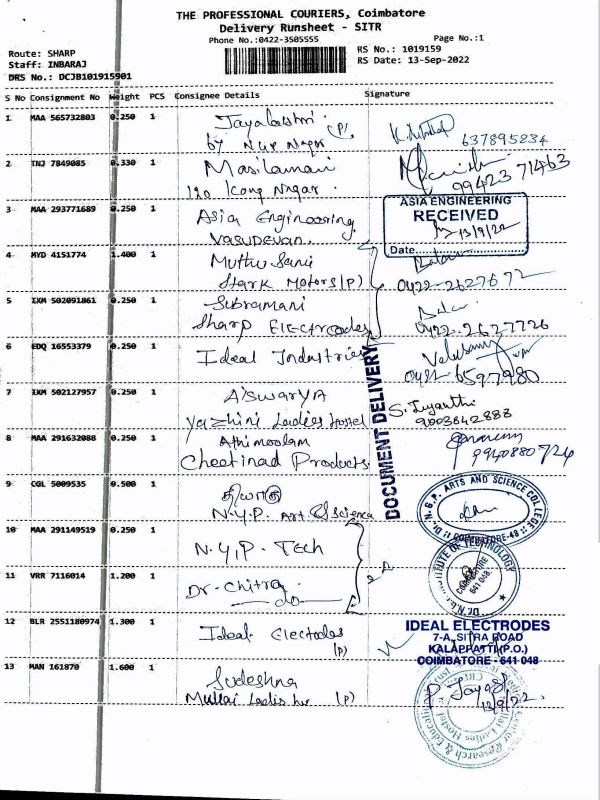 THE PROFESSIONAL COURIERS, Coimbatore
Delivery Runsheet - SITR
Phone No.:0422-3505555
Page No.:1
Route: SHARP
RS No.: 1019159
Staff: INBARAJ
RS Date: 13-Sep-2022
DRS No.: DCJB101915901
S No Consignment No Weight PCS Consignee Details Signature
1 MAA 565732803 0.250 1 Jayalakshmi (P)
67 NGP Nagar
637895234
2 TNJ 7849085 0.330 1 Masilamani
120 Kong Nagar
99423 71463
3 MAA 293771689 0.250 1 Asia Engineering
Vasudevan
ASIA ENGINEERING
RECEIVED
13/9/22
Date
4 MYD 4151774 1.400 1 Muthu Sami
Stark Motors (P)
Balan
0422-2627672
5 IXM 502091861 0.250 1 Subramani
Sharp Electrodes
0422-2627726
6 EDQ 16553379 0.250 1 Ideal Industries
Velusamy
6597980
DOCUMENT DELIVERY
7 IXM 502127957 0.250 1 Aiswarya
Yazhini Ladies Hostel
9003642888
8 MAA 291632088 0.250 1 Athimoolam
Cheetinad Products
9940880724
9 CGL 5009535 0.500 1
N.G.P. Art & Science
Dr. N. G. P. ARTS AND SCIENCE COLLEGE
COIMBATORE-48
10 MAA 291149519 0.250 1 N.G.P. Tech
INSTITUTE OF TECHNOLOGY
COIMBATORE
641 048.
11 VRR 7116014 1.200 1 Dr. Chitra
do
12 BLR 2551180974 1.300 1 Ideal Electrodes
(P)
IDEAL ELECTRODES
7-A, SITRA ROAD
KALAPPATTI (P.O.)
COIMBATORE - 641 048
13 MAN 161870 1.600 1 Sudeshna
Mullai Ladis (P)
P. Jaya
13/9/22